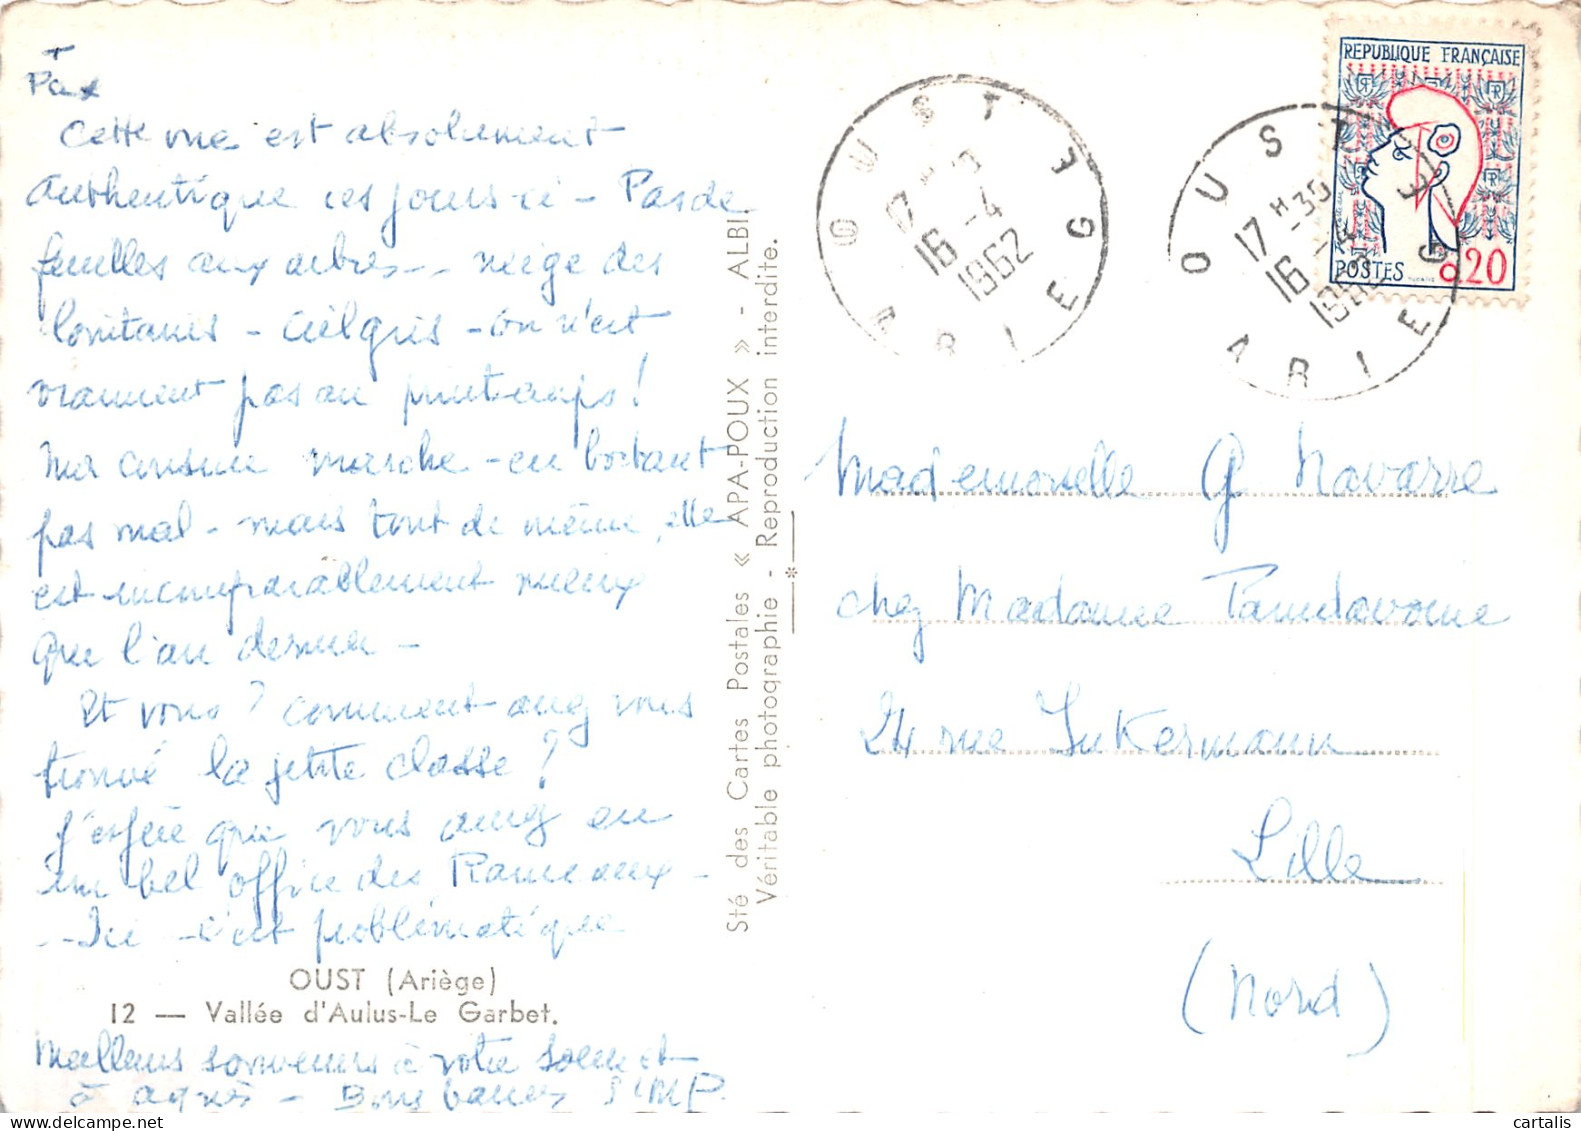 +
Pax
Cette vue est absolument
authentique ces jours-ci - Pas de
feuilles aux arbres -- neige des
lointains - Ciel gris - on n'est
vraiment pas au printemps !
Ma cousine marche - en boitant
pas mal - mais tout de même, elle
est incomparablement mieux
que l'an dernier -
Et vous ? comment avez vous
trouvé la petite classe ?
J'espère que vous avez eu
un bel office des Rameaux -
-- Ici - c'est problématique
OUST (Ariège)
12 — Vallée d'Aulus-Le Garbet.
Meilleurs souvenirs à votre soeur et
à Agnès - Bonnes Sr M P.
Sté des Cartes Postales « APA-POUX » - ALBI.
Véritable photographie - Reproduction interdite.
OUST ARIEGE
17 H
16 -4
1962
OUST ARIEGE
17 H 30
16 -4
1962
REPUBLIQUE FRANÇAISE
POSTES 0,20
Mademoiselle G Navarre
chez Madame
24 rue Inkermann
Lille
(Nord)
cartalis